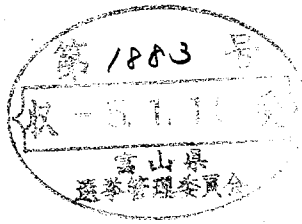 第 1883 号
収 -5.1.1
富山県
選挙管理委員会